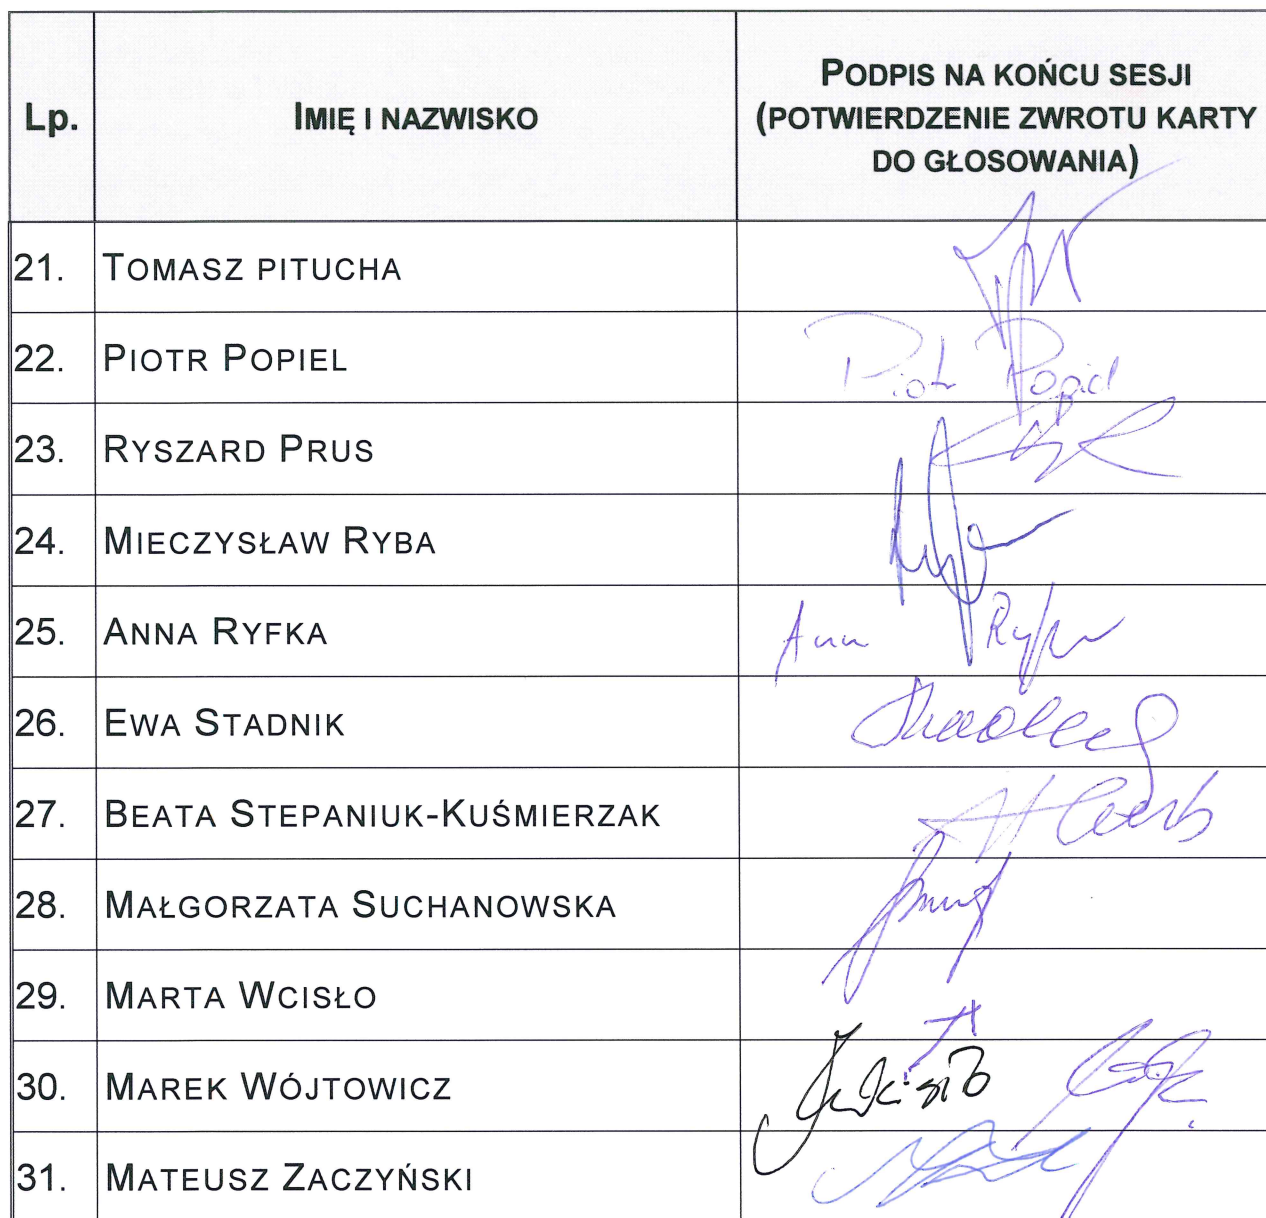 Lp.
IMIĘ I NAZWISKO
PODPIS NA KOŃCU SESJI
(POTWIERDZENIE ZWROTU KARTY
DO GŁOSOWANIA)
21. TOMASZ PITUCHA
22. PIOTR POPIEL Piotr Popiel
23. RYSZARD PRUS
24. MIECZYSŁAW RYBA
25. ANNA RYFKA
26. EWA STADNIK
27. BEATA STEPANIUK-KUŚMIERZAK
28. MAŁGORZATA SUCHANOWSKA
29. MARTA WCISŁO
30. MAREK WÓJTOWICZ
31. MATEUSZ ZACZYŃSKI